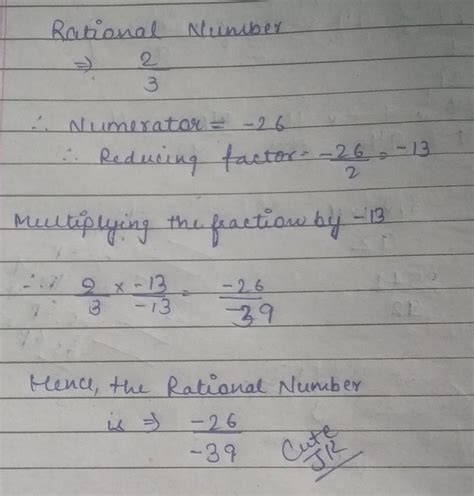 Rational Number
⇒ 2/3
∴ Numerator = -26
∴ Reducing factor = -26/2 = -13
Multiplying the fraction by -13
∴ 2/3 × -13/-13 = -26/-39
Hence, the Rational Number
is ⇒ -26/-39
Cute